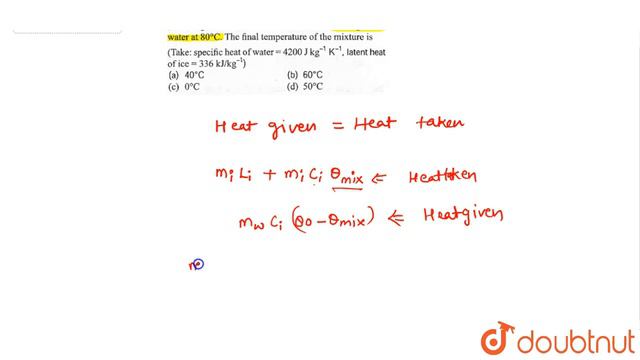 water at 80°C. The final temperature of the mixture is
(Take: specific heat of water = 4200 J kg⁻¹ K⁻¹, latent heat
of ice = 336 kJ/kg⁻¹)
(a) 40°C (b) 60°C
(c) 0°C (d) 50°C
Heat given = Heat taken
mᵢ Lᵢ + mᵢ Cᵢ θmix ⇐ Heat taken
m_w Cᵢ (80 − θmix) ⇐ Heat given
m
doubtnut